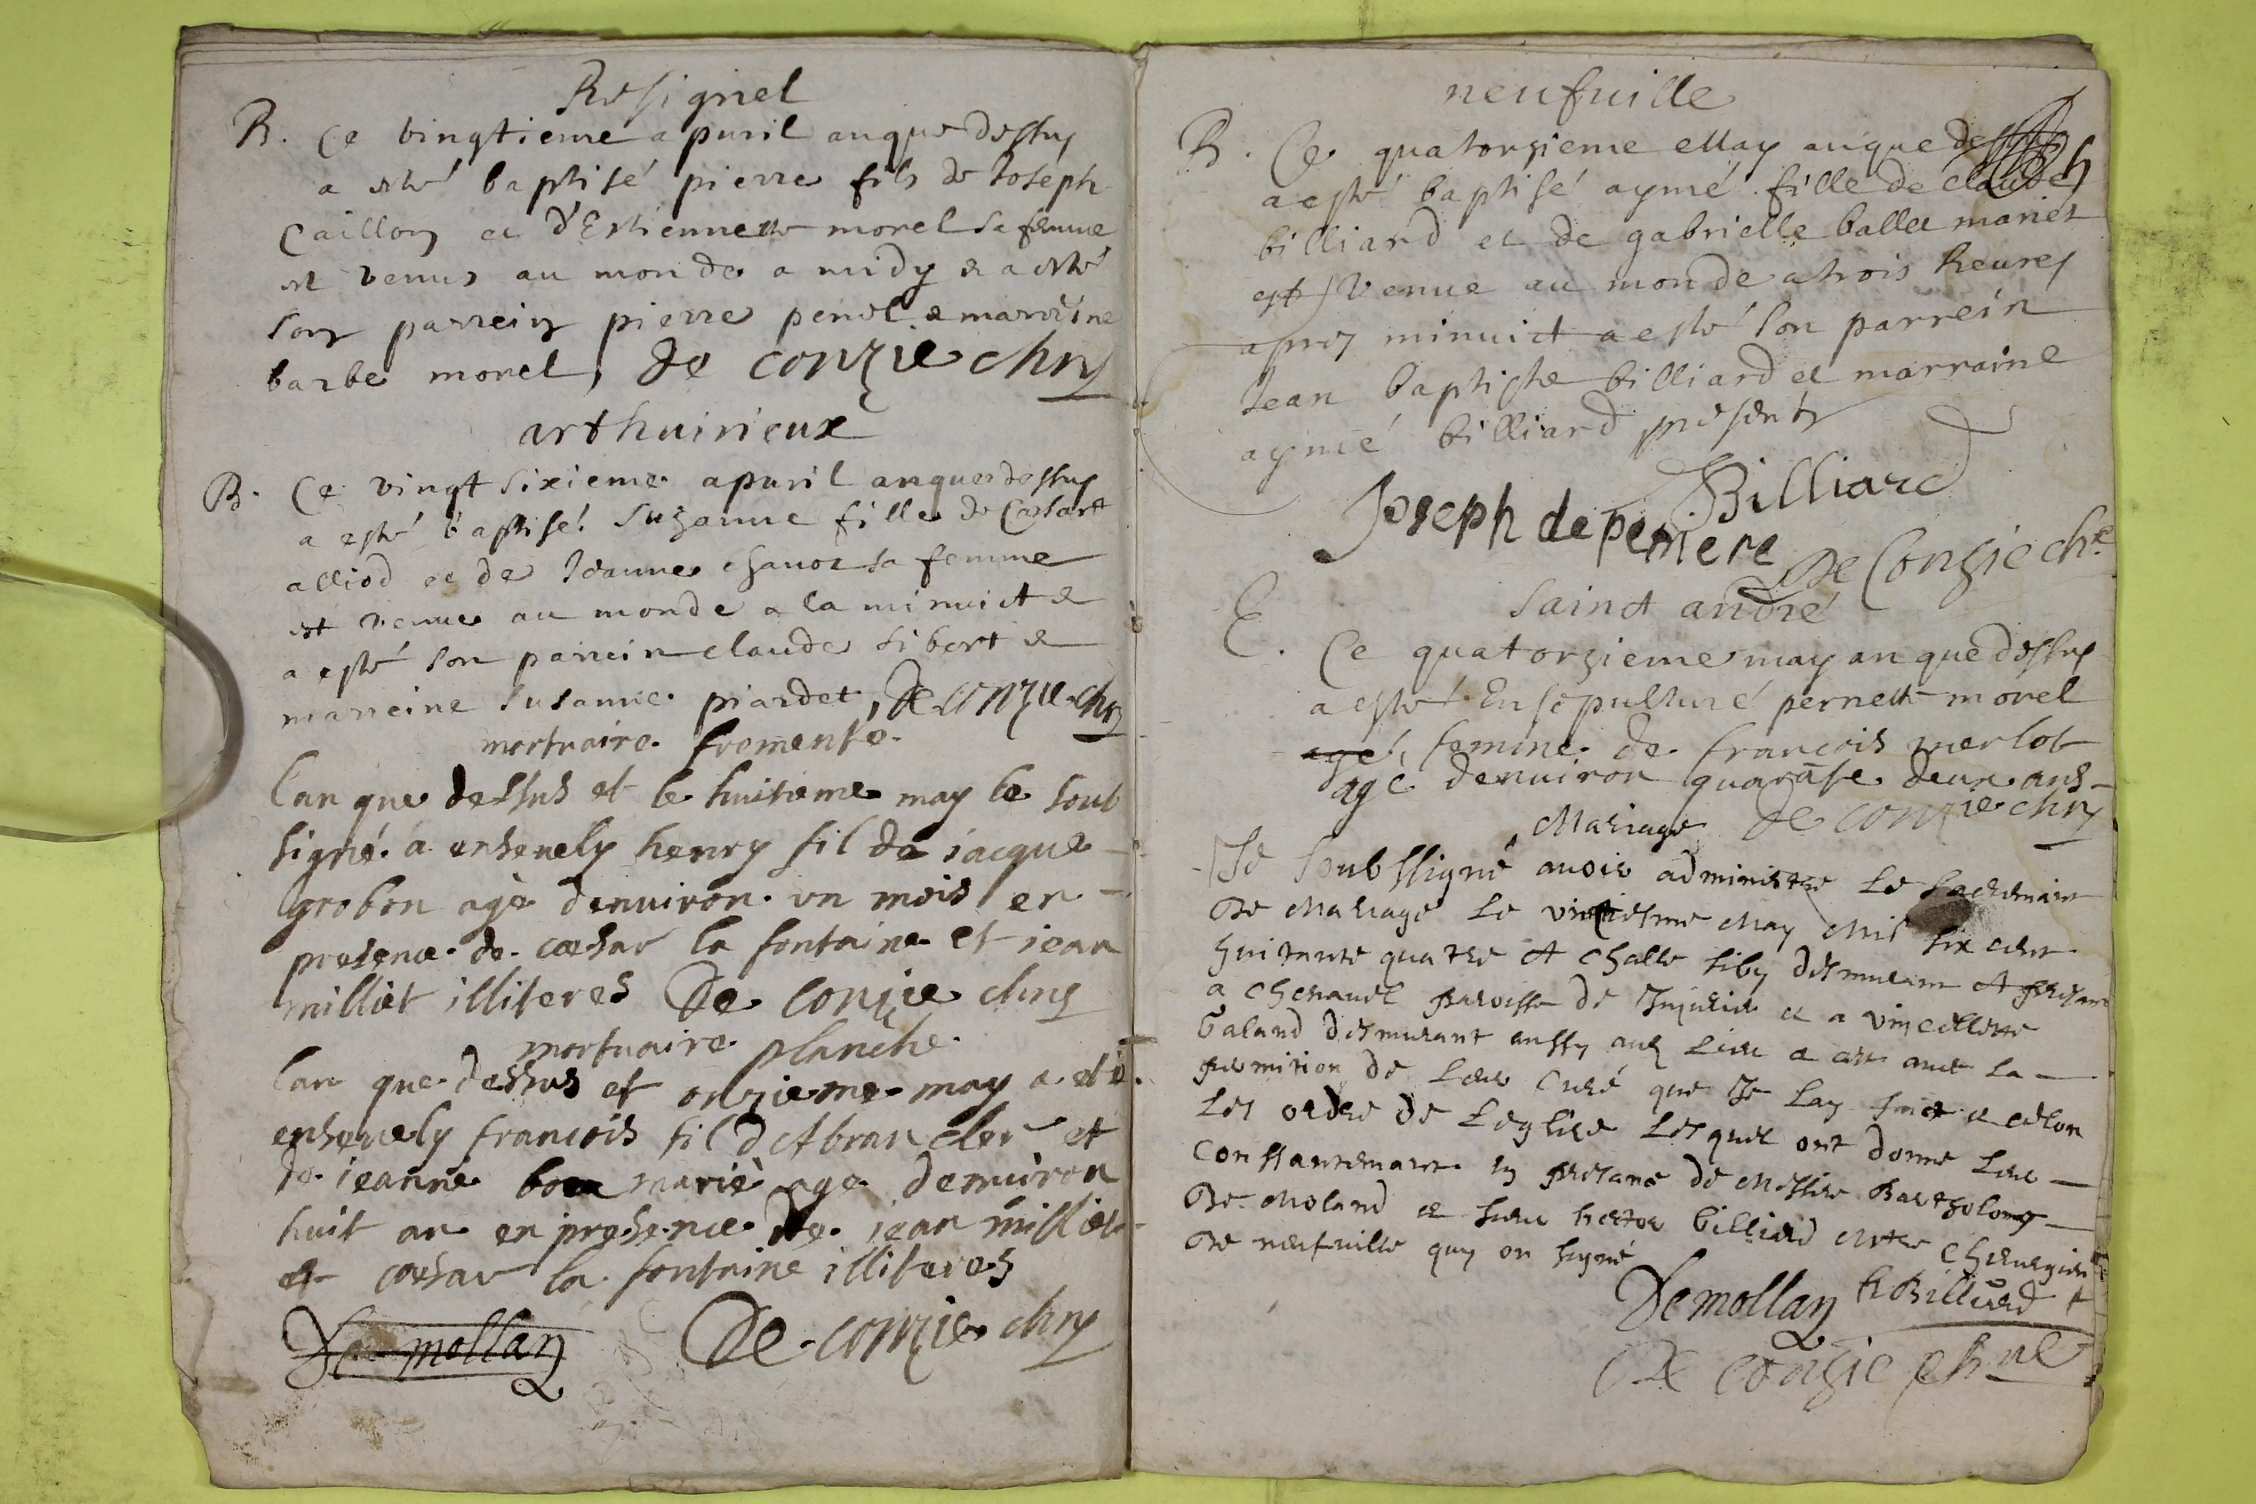 Resignel
B. Ce vingtieme apuril anque dessus
a esté baptisé pierre fils de Joseph
Caillon et d'Estiennette morel sa femme
est venus au monde a midy & a esté
son parrein pierre penel & marreine
barbe morel, De conzie chne
arthuirieux
B. Ce vingt sixieme apuril anque dessus
a esté baptisé Suzanne fille de
alliod et de Jeanne chanoz sa femme
est venue au monde a la minuict &
a esté son parrein claude sibert &
marreine Susanne piardet, De conzie chne
mortuaire fromente
lan que dessus et le huitieme may le soub
signé a ensevely henry fil de iacque
grobon agè denuiron un mois en
presence de cæsar la fontaine et iean
milliet illiteres De conzie chne
mortuaire planche
lan que dessus et onzieme may a eté
ensevely francois fil d Abran cler et
de ieanne mariè age denuiron
huit an en presence de iean milliet
et cæsar la fontaine illiteres
De mollan De conzie chne
neufuille
B. Ce quatorzieme May anque
a esté baptisé aymé fille de claude
billiard et de gabrielle ballet mariez
est venue au monde a trois heures
aprez minuict a esté son parrein
Jean baptiste billiard et marraine
aymeé billiard presents
Billiard
Joseph de perriere De Conzie chne
sainct andré
E. Ce quatorzieme may an que dessus
a esté Ensepulturé pernette morel
agé femme de francois merlot
agé denuiron quarāte deux ans
Mariage De conzie chne
Je soubssigné auoir administre le sacremant
de Mariage le vintiesme May Mil six cent
huittante quatre A Challe siby desmurant A
a Chenauel paroisse de Jujurieu et a
Galand desmurant aussy aux lieu a ce auec la
permition de leur Curé que Je lay faict et celon
les ordre de leglise lesquel ont donne leur
Consantemant en presance de Messire Bartholomy
de Moland et sieur hector billiard Mtre Chirurgien
de neufuille quy on signé
De mollan h Billiard
De conzie chne